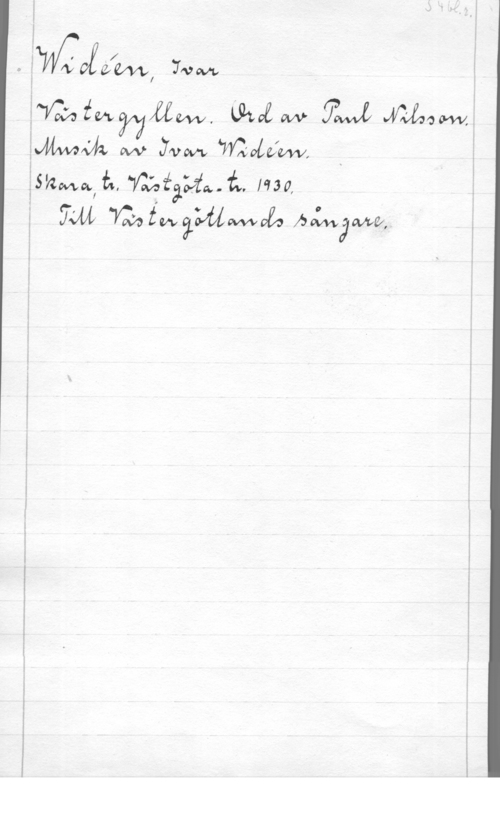 Widéen, Ivar
Västergyllen. Ord av Paul Nilsson.
Musik av Ivar Widéen.
Skara, tr. Västgöta-tr. 1930.
Till Västergötlands sångare.